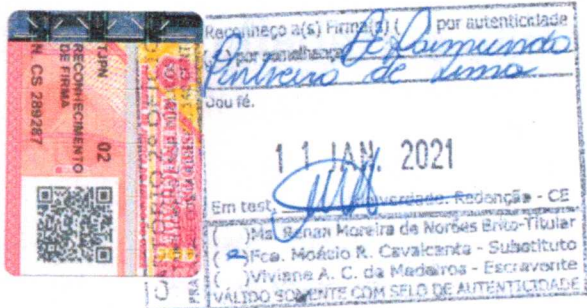 TJPN 02
RECONHECIMENTO
DE FIRMA
N CS 289287
Reconheço a(s) Firma(s) ( ) por autenticidade
por semelhança De Raimundo
Pinheiro de Lima
Dou fé.
11 JAN. 2021
Em test. verdade. Redenção - CE
( )Ms. Renan Moreira de Norões Brito-Titular
( )Fca. Moácio R. Cavalcante - Substituto
( )Viviane A. C. da Medeiros - Escrevente
VÁLIDO SOMENTE COM SELO DE AUTENTICIDADE